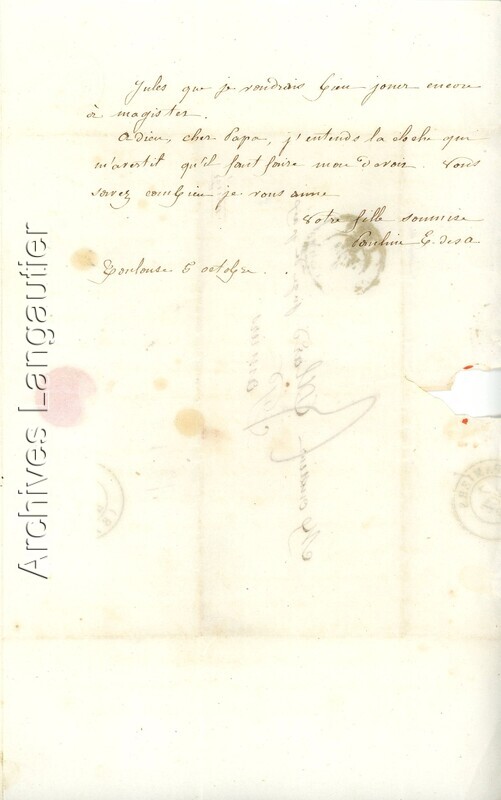 Jules que je voudrais bien jouer encore
à magister.
Adieu, cher Papa, j'entends la cloche qui
m'avertit qu'il faut faire mon devoir. Vous
savez combien je vous aime
Votre fille soumise
Pauline
Toulouse 5 octobre.
Archives Langautier